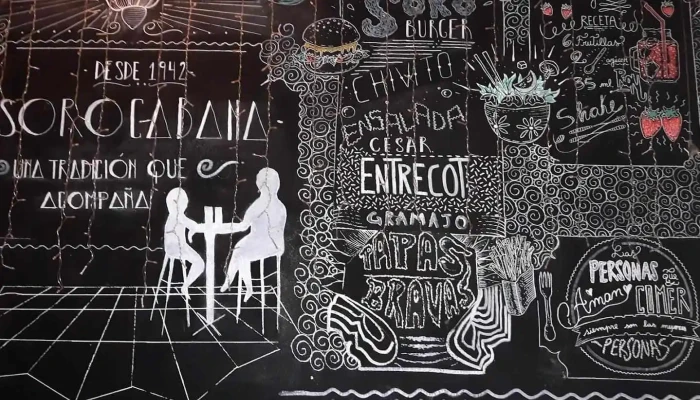 DESDE 1942
SOROCABANA
UNA TRADICIÓN QUE
ACOMPAÑA
BURGER
CHIVITO
ENSALADA
CESAR
ENTRECOT
GRAMAJO
PAPAS
BRAVAS
RECETA
6 Frutillas
35 ml
RON
Shake
Las
PERSONAS que
Aman COMER
siempre son las mejores
PERSONAS